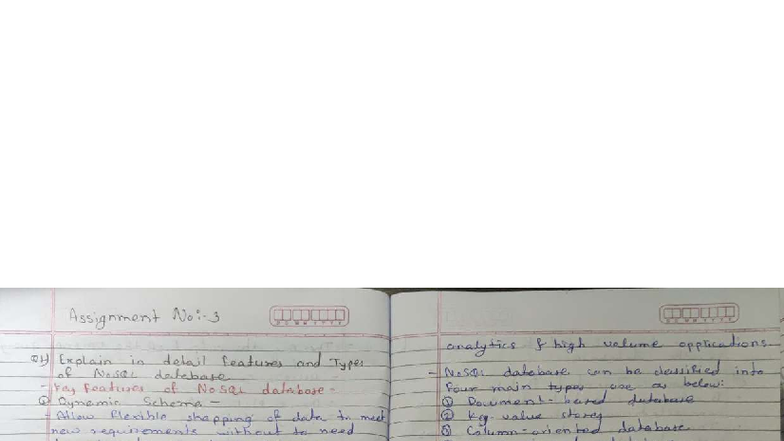 Assignment No:-3
Q1) Explain in detail features and Types
of NoSQL database
- Key features of NoSQL database -
① Dynamic Schema -
- Allow flexible shapping of data to meet
new requirements without to need
analytics & high volume applications
- NoSQL database can be classified into
four main types are as below:
① Document-based database
② Key-value stores
③ Column-oriented database